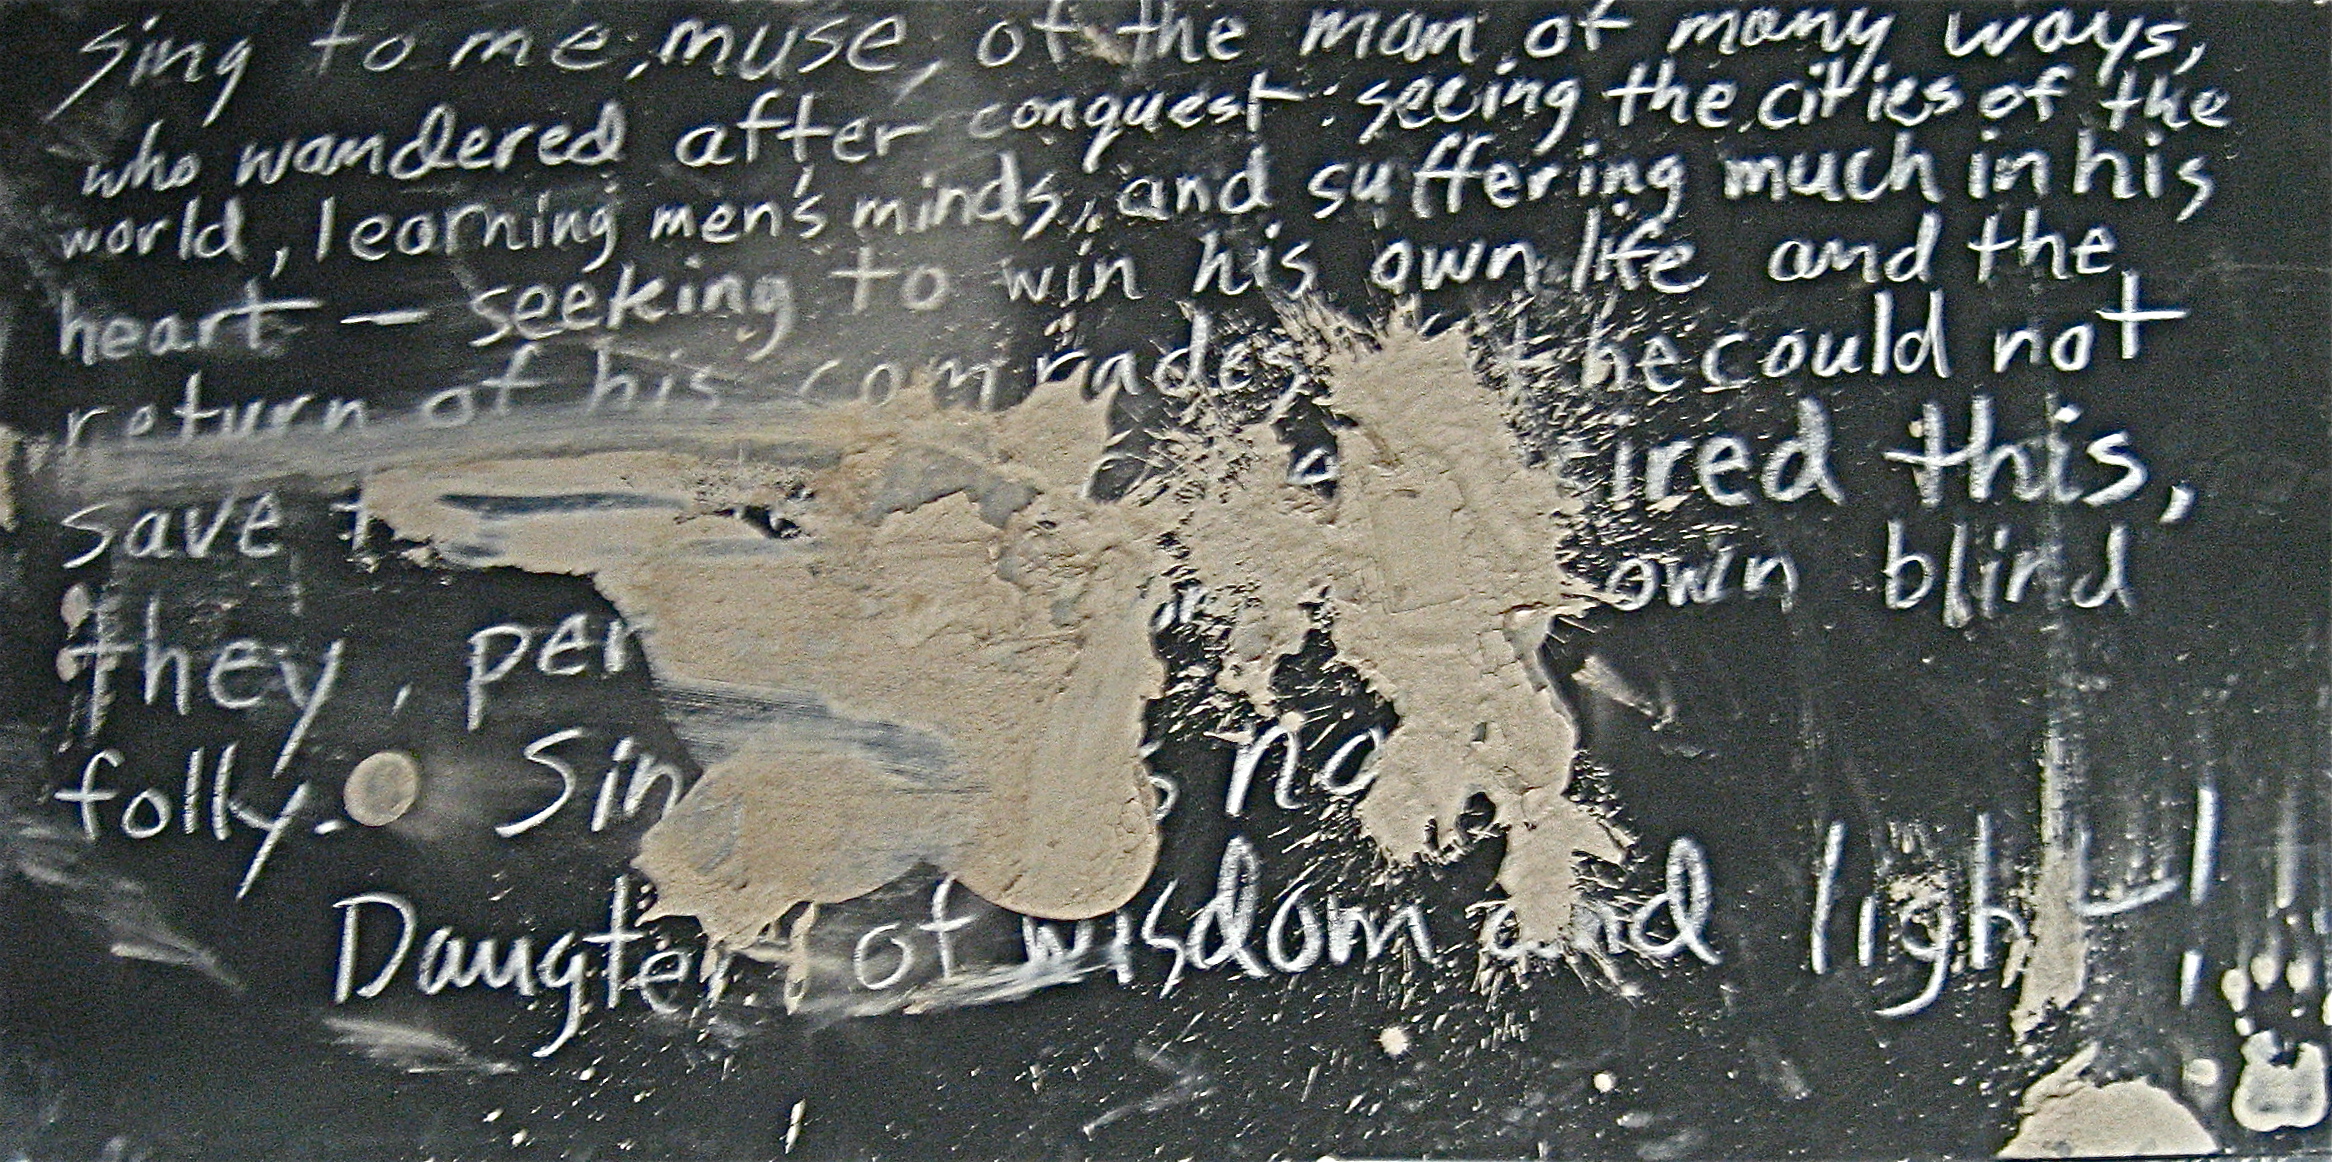 Sing to me, muse, of the man of many ways,
who wandered after conquest: seeing the cities of the
world, learning men's minds, and suffering much in his
heart — seeking to win his own life and the
return of his comrades he could not
save ired this,
they, per own blind
folly. Sin
Daugter of wisdom and light!